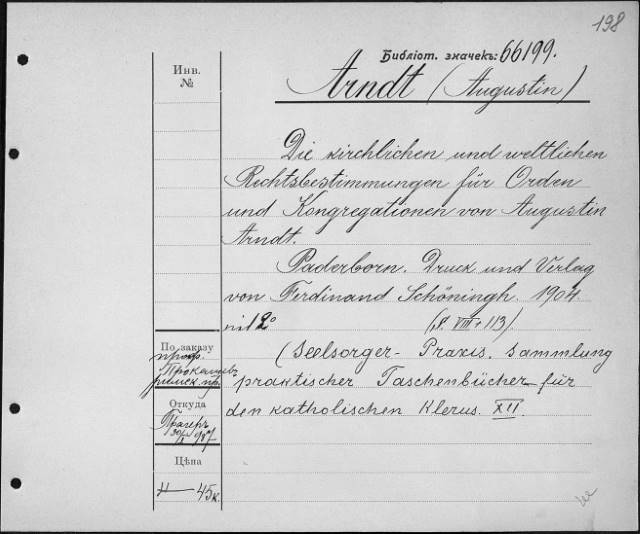 198
Библіот. значекъ: 66199.
Инв.
№
Arndt (Augustin)
Die kirchlichen und weltlichen
Rechtsbestimmungen für Orden
und Kongregationen von Augustin
Arndt.
Paderborn. Druck und Verlag
von Ferdinand Schöningh. 1904.
12° (S. VIII + 113).
(Seelsorger-Praxis. Sammlung
praktischer Taschenbücher für
den katholischen Klerus. XII.
По заказу
проф.
римск. пр.
Откуда
Цѣна
45к.